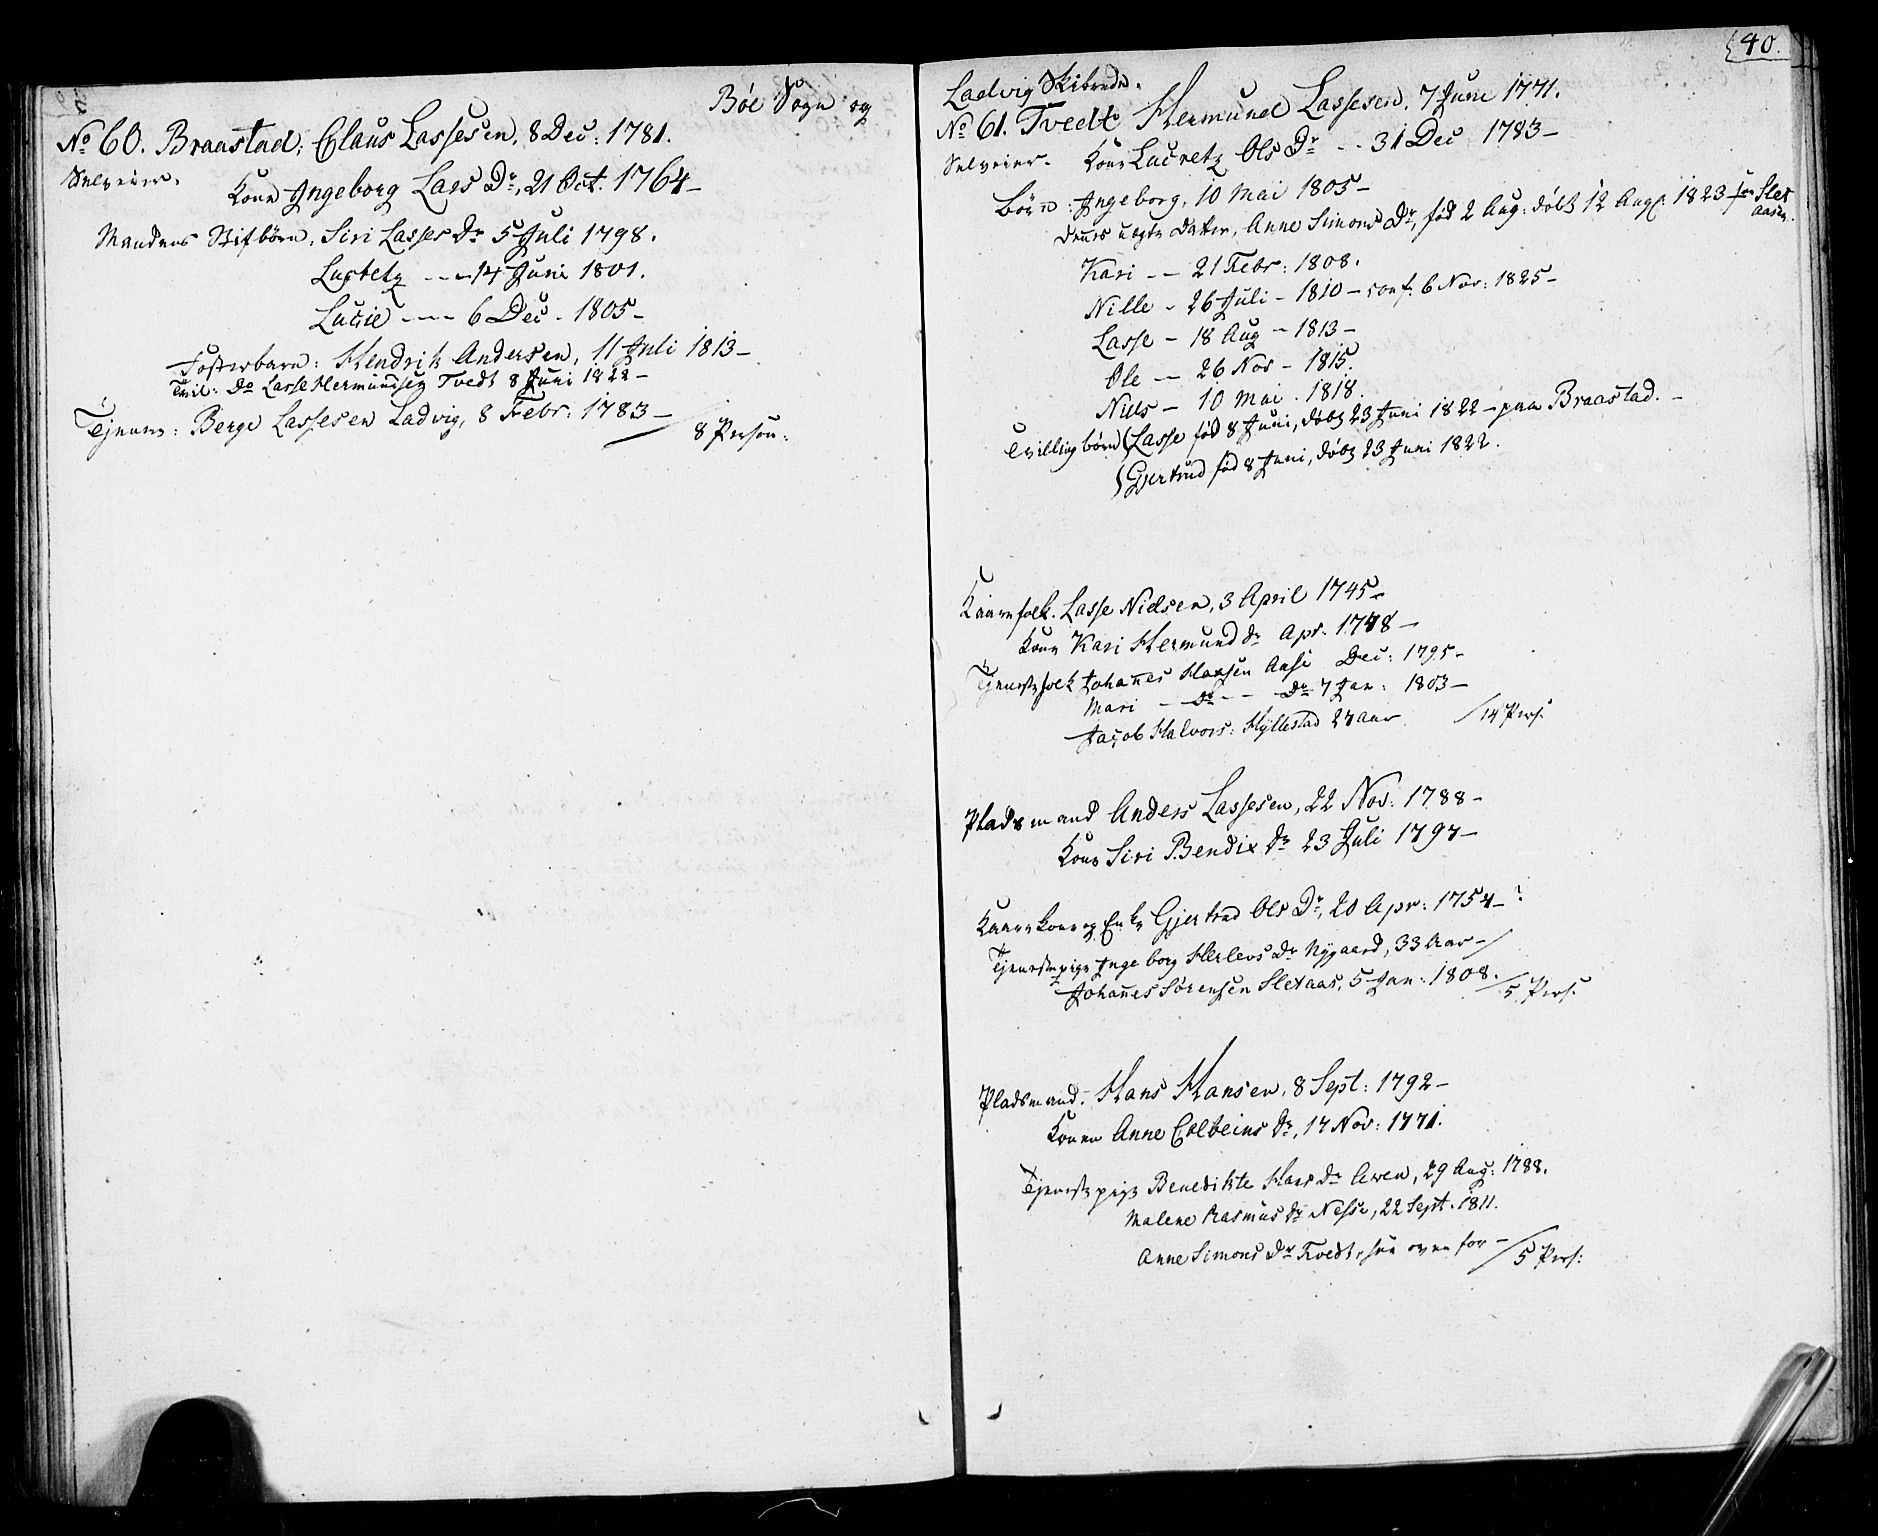 Bøe Sogn og
No 60. Braastad, Claus Lassesen, 8 Dec: 1781.
Selveier.
Kone Ingeborg Lars Dr, 21 Oct. 1764 –
Mandens Stifbørn, Siri Lasses Dr 5 Juli 1798.
Lucretz - - - 14 Juni 1801.
Lucie - - - 6 Dec - 1805 –
Fosterbarn: Hendrik Andersen, 11 Juli 1813 –
Tvil: Do Lasse Hermundsen Tvedt 8 Juni 1822 –
Tjener: Berge Lassesen Ladvig, 8 Febr: 1783 –
8 Person:
40.
Ladvig Skibrede.
No 61. Tvedt Hermund Lassesen, 7 Juni 1771.
Selveier. Kone Lucretz Ols Dr - - 31 Dec 1783 –
Børn: Ingeborg, 10 Mai 1805 –
Dennes uægte Datter, Anne Simons Dr, fød 2 Aug: døbt 12 Aug: 1823 Slet
aasen.
Kari - - 21 Febr: 1808.
Nille - 26 Juli - 1810 – conf: 6 Nov: 1825 –
Lasse - 18 Aug - 1813 –
Ole - - 26 Nov - 1815.
Niels - 10 Mai . 1818.
Tvillingbørn { Lasse fød 8 Juni, døbt 23 Juni 1822 – paa Braastad. –
{ Gjertrud fød 8 Juni, døbt 23 Juni 1822.
Kaarefolk. Lasse Nielsen, 3 April 1745 –
Kone Kari Hermund dr Apr: 1748 –
Tjenestefolk Johannes Hansen Aase Dec: 1795 –
Mari - Do - - Do 7 Jan: 1803 –
Jacob Halvors: Hyllestad 27 Aar
/ 14 Pers:
Pladsmand Anders Lassesen, 22 Nov: 1788 –
Kone Siri Bendix Dr 23 Juli 1797 –
Kaarekone og Enke Gjertrud Ols Dr, 20 Apr: 1754 –
Tjenestepige Ingeborg Herlevs Dr Nygaard, 33 Aar –
Johannes Sørensen Sletaas, 5 Jan: 1808.
/ 5 Pers:
Pladsmand. Hans Hansen, 8 Sept: 1792 –
Konen Anne Colbeins Dr, 17 Nov: 1771.
Tjenestepige Benedikte Hans Dr Aven, 29 Aug: 1788.
Malene Rasmus Dr Nesse, 22 Sept. 1811.
Anne Simons Dr Tvedt, see oven for –
/ 5 Pers: